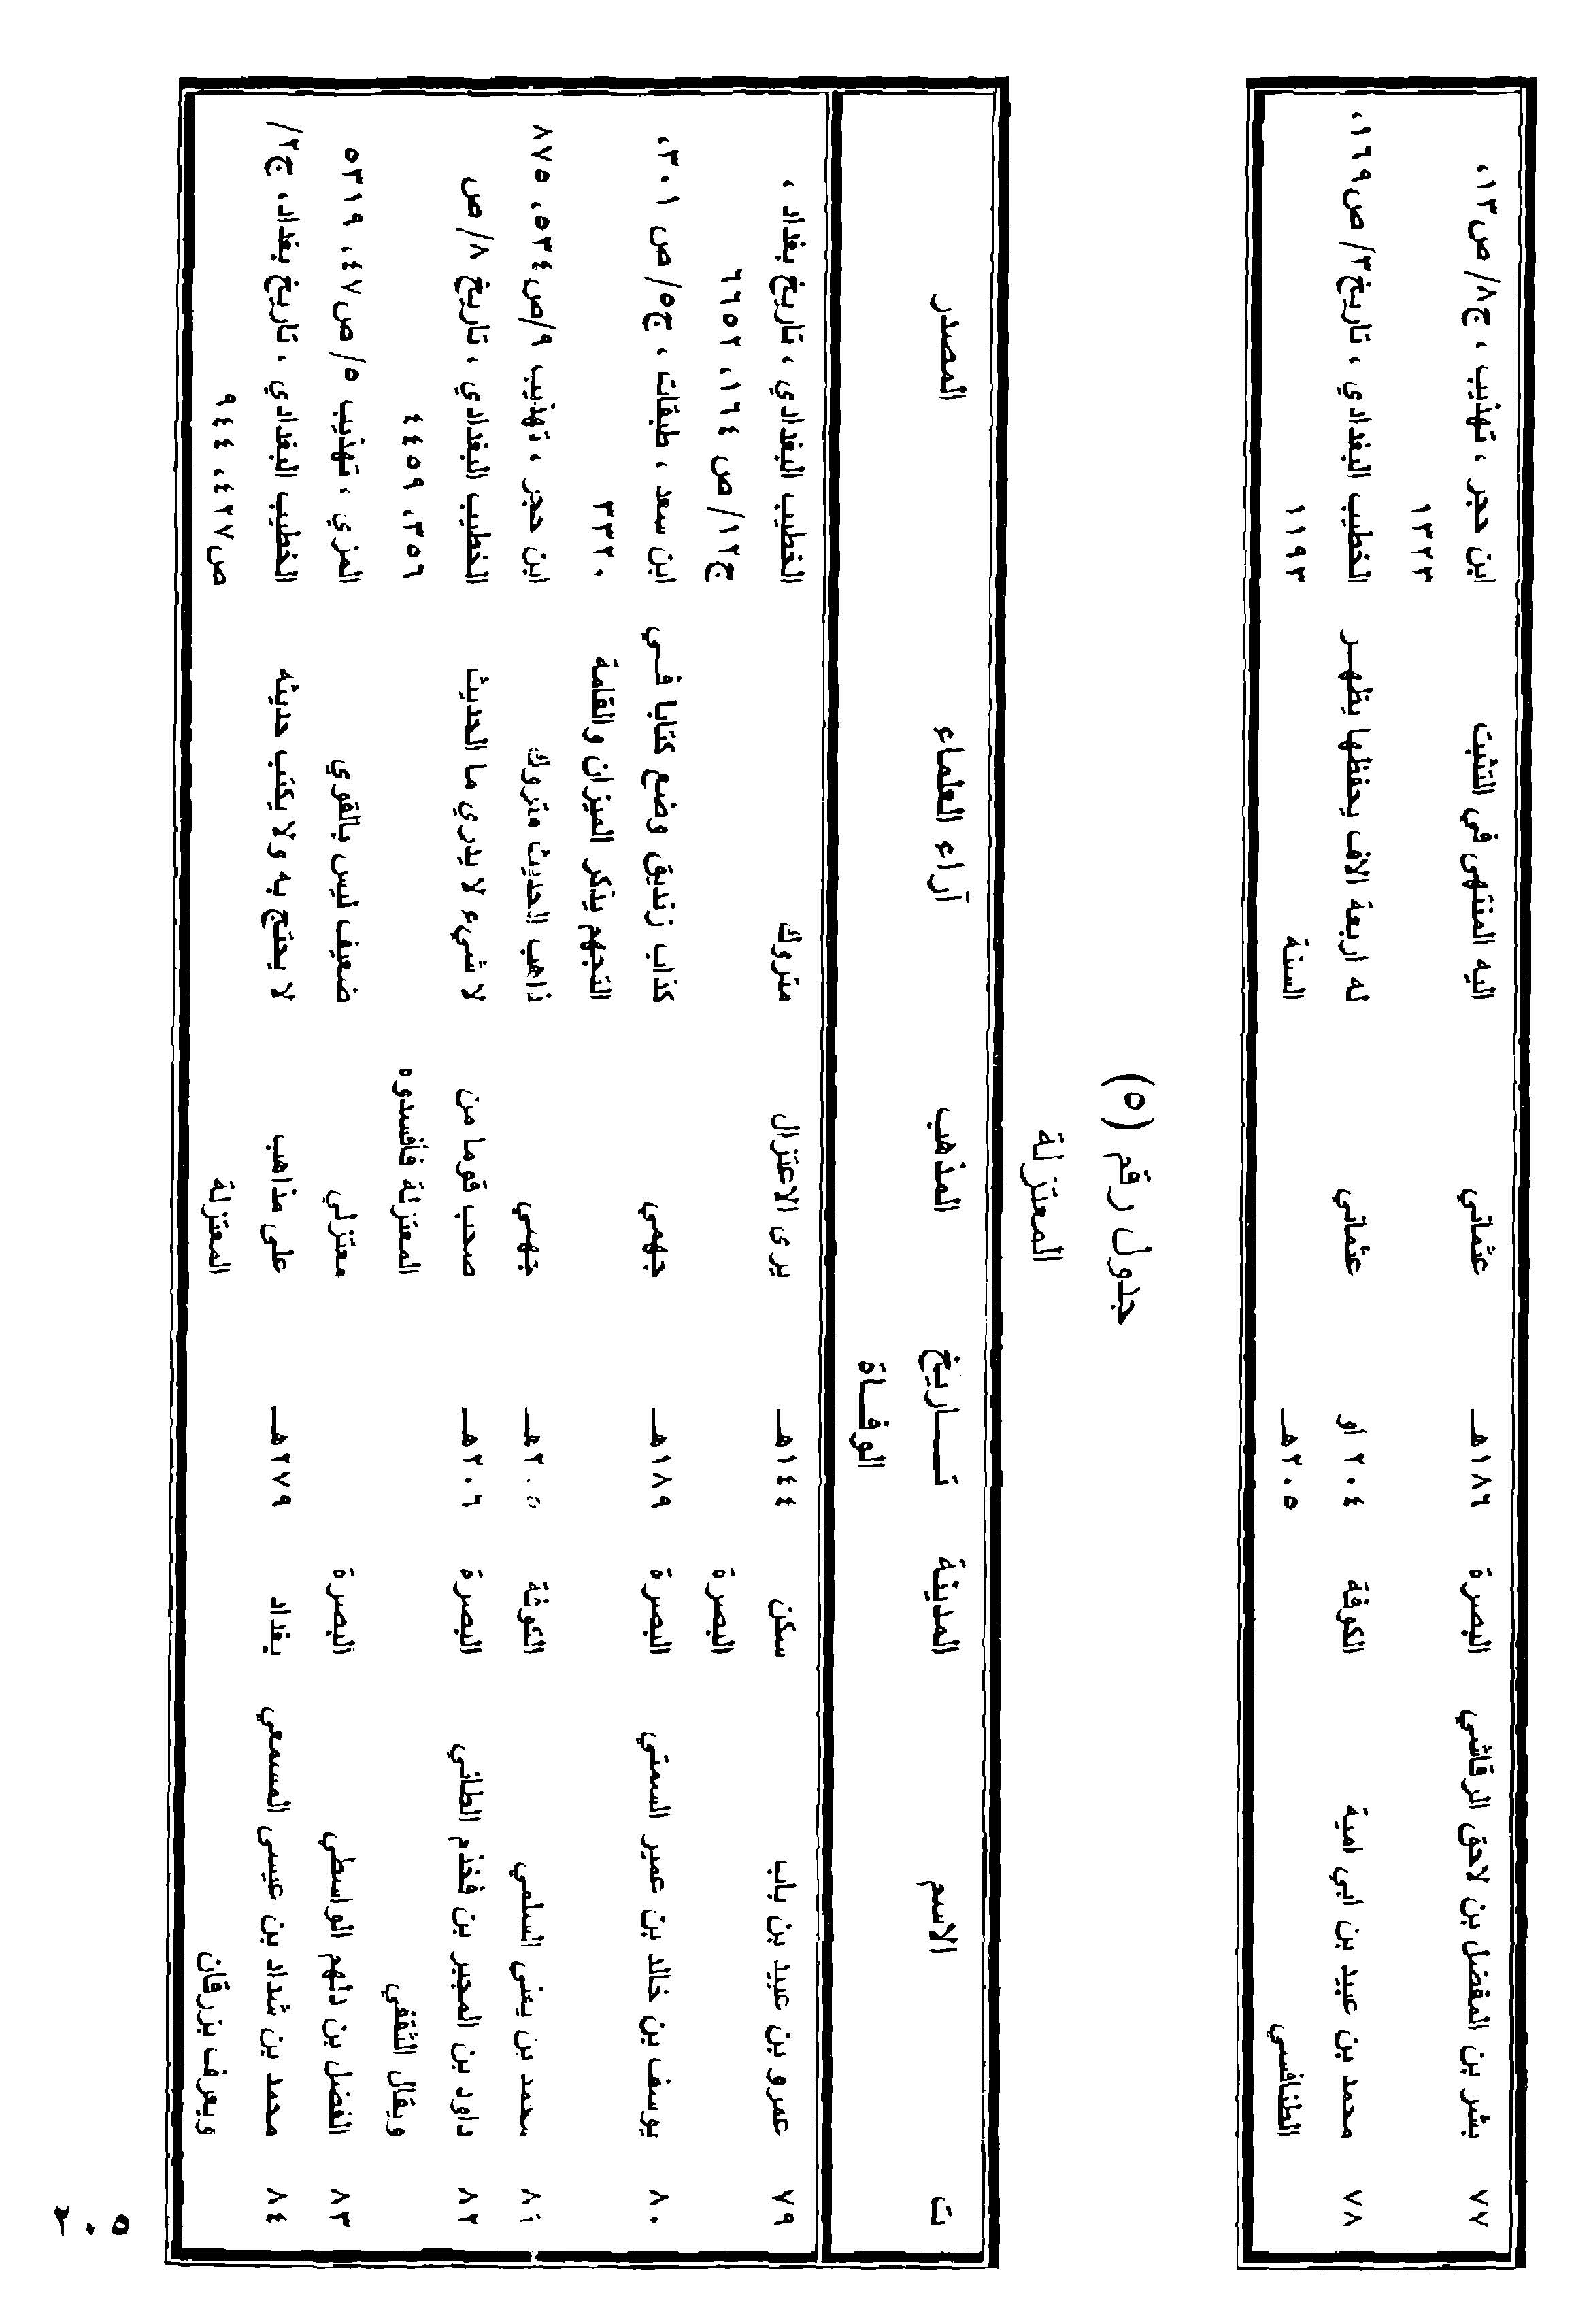 ٧٧ بشر بن المفضل بن لاحق الرقاشي البصرة ١٨٦هـ عثماني اليه المنتهى في التثبت ابن حجر ، تهذيب ، ج٨/ ص١٣،
١٣٢٣
٧٨ محمد بن عبيد بن ابي امية الكوفة ٢٠٤ او عثماني له اربعة الاف يحفظها يظهر الخطيب البغدادي ، تاريخ٣/ ص١٦٩،
الطنافسي ٢٠٥هـ السنة ١١٩٣
جدول رقم (٥)
المعتزلة
ت الاسم المدينة تاريخ المذهب آراء العلماء المصدر
الوفاة
٧٩ عمرو بن عبيد بن باب سكن ١٤٤هـ يرى الاعتزال متروك الخطيب البغدادي ، تاريخ بغداد ،
البصرة ج١٢/ ص ١٦٤، ٦٦٥٢
٨٠ يوسف بن خالد بن عمير السمتي البصرة ١٨٩هـ جهمي كذاب زنديق وضع كتابا في ابن سعد ، طبقات ، ج٥/ ص ٣٠١،
التجهم يذكر الميزان والقامة ٣٣٢٠
٨١ محمد بن يعني السلمي الكوفة ٢٠٥هـ جهمي ذاهب الحديث متروك ابن حجر ، تهذيب ٩/ص٥٣٤، ٨٧٥
٨٢ داود بن المجبر بن قخذم الطائي البصرة ٢٠٦هـ صحب قوما من لا شيء لا يدري ما الحديث الخطيب البغدادي ، تاريخ ٨/ ص
ويقال الثقفي المعتزلة فأفسدوه ٣٥٦، ٤٤٥٩
٨٣ الفضل بن دلهم الواسطي البصرة معتزلي ضعيف ليس بالقوي المزي ، تهذيب ٥/ ص٤٧، ٥٣١٩
٨٤ محمد بن شداد بن عيسى المسمعي بغداد ٢٧٩هـ على مذاهب لا يحتج به ولا يكتب حديثه الخطيب البغدادي ، تاريخ بغداد، ج٢/
ويعرف بزرقان المعتزلة ص٤٢٧، ٩٤٤
٢٠٥